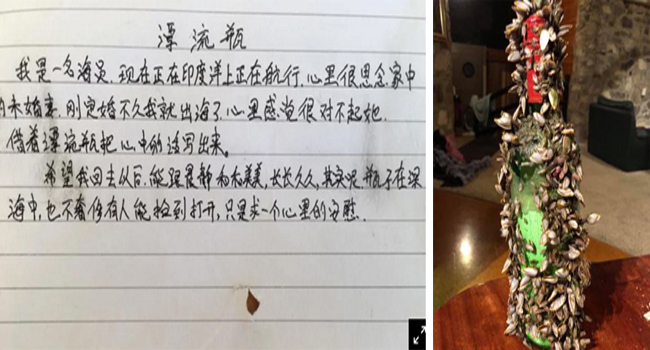 漂流瓶
我是一名海员,现在正在印度洋上正在航行,心里很思念家中
未婚妻,刚定婚不久我就出海了,心里感觉很对不起她.
借着漂流瓶把心中的话写出来。
希望我回去以后,能跟晨静和和美美,长长久久,其实呢 瓶子在深
海中,也不奢侈有人能捡到打开,只是求一个心里的安慰.